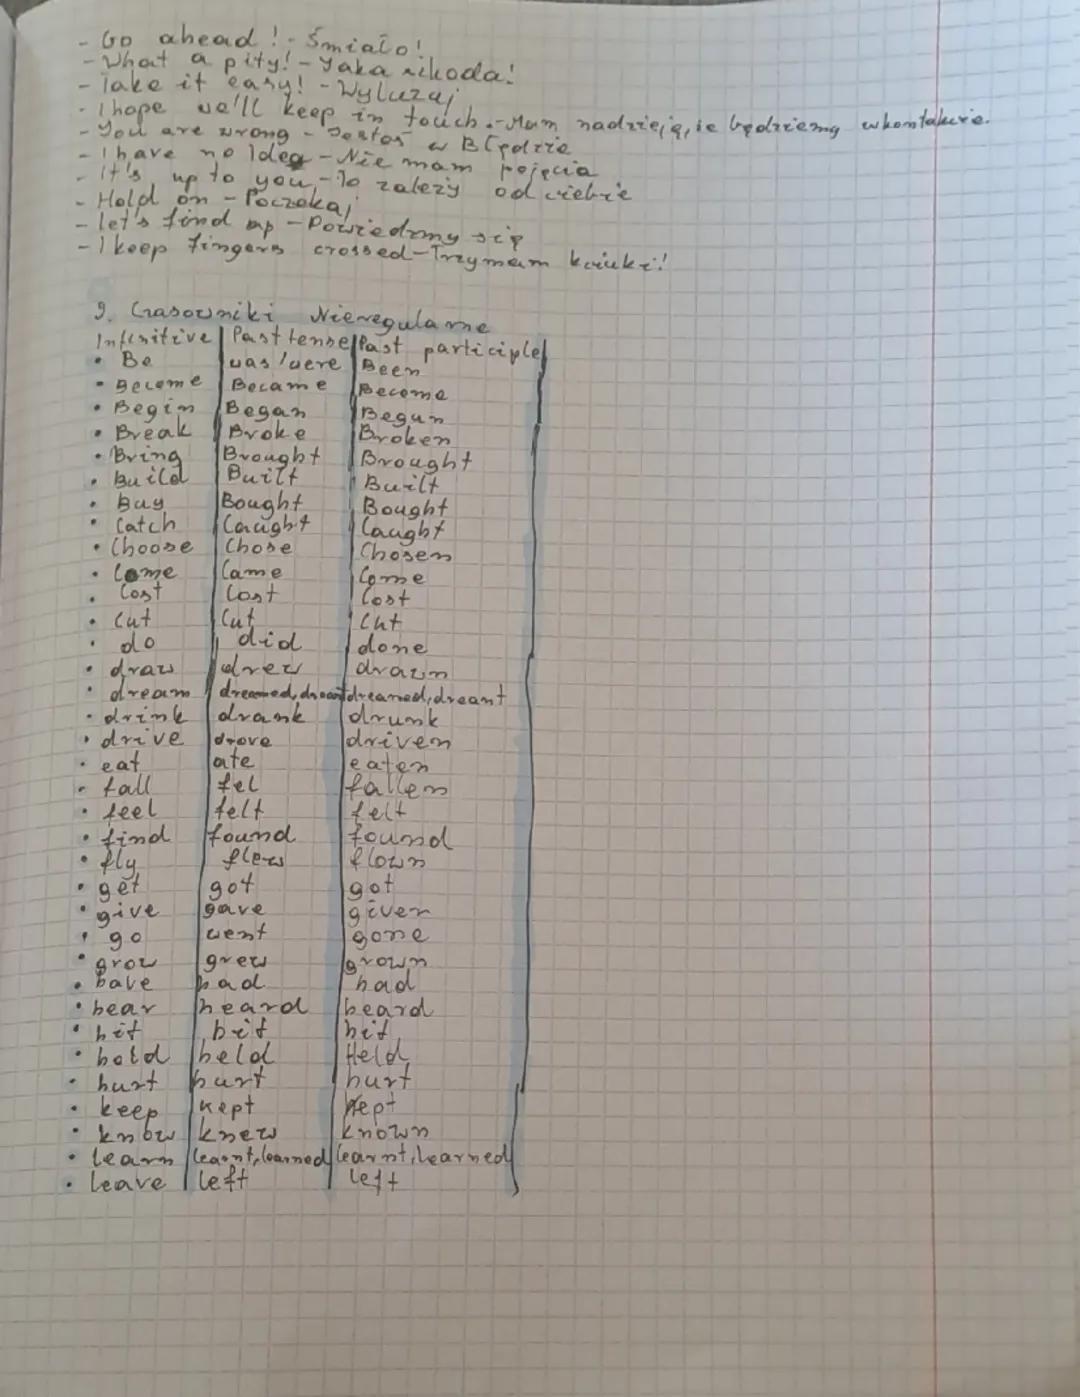 - Go ahead! - Śmiało!
- What a pity! - Jaka szkoda!
- Take it easy! - Wyluzuj
- I hope we'll keep in touch. - Mam nadzieję, że będziemy w kontakcie.
- You are wrong - Jesteś w Błędzie
- I have no Idea - Nie mam pojęcia
- It's up to you, - To zależy od ciebie
- Hold on - Poczekaj
- let's find up - Powiedzmy się
- I keep fingers crossed - Trzymam kciuki!
9. Czasowniki Nieregularne
Infinitive | Past tense | Past participle
• Be | was/were | Been
• Become | Became | Become
• Begin | Began | Begun
• Break | Broke | Broken
• Bring | Brought | Brought
• Build | Built | Built
• Buy | Bought | Bought
• Catch | Caught | Caught
• Choose | Chose | Chosen
• Come | Came | Come
• Cost | Cost | Cost
• Cut | Cut | Cut
• do | did | done
• draw | drew | drawn
• dream | dreamed, | dreamed, dreant
• drink | drank | drunk
• drive | drove | driven
• eat | ate | eaten
• fall | fel | fallen
• feel | felt | felt
• find | found | found
• fly | flew | flown
• get | got | got
• give | gave | given
• go | went | gone
• grow | grew | grown
• have | had | had
• hear | heard | heard
• hit | hit | hit
• hold | held | Held
• hurt | hurt | hurt
• keep | kept | Kept
• know | knew | known
• learn | learnt, learned | learnt, learned
• leave | left | left